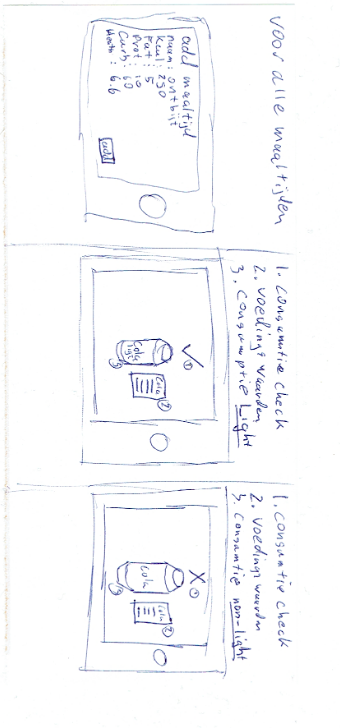 voor alle maaltijden
add maaltijd
naam: ontbijt
kcal: 250
Fat: 5
Prot: 10
Carb: 60
Heath: 6.6
add
1. Consumtie check
2. Voedings waarden
3. Consumptie Light
1
Cola light
Cola
2
3
1. Consumtie check
2. Voedings waarden
3. Consumtie non-light
1
Cola
Cola
2
3